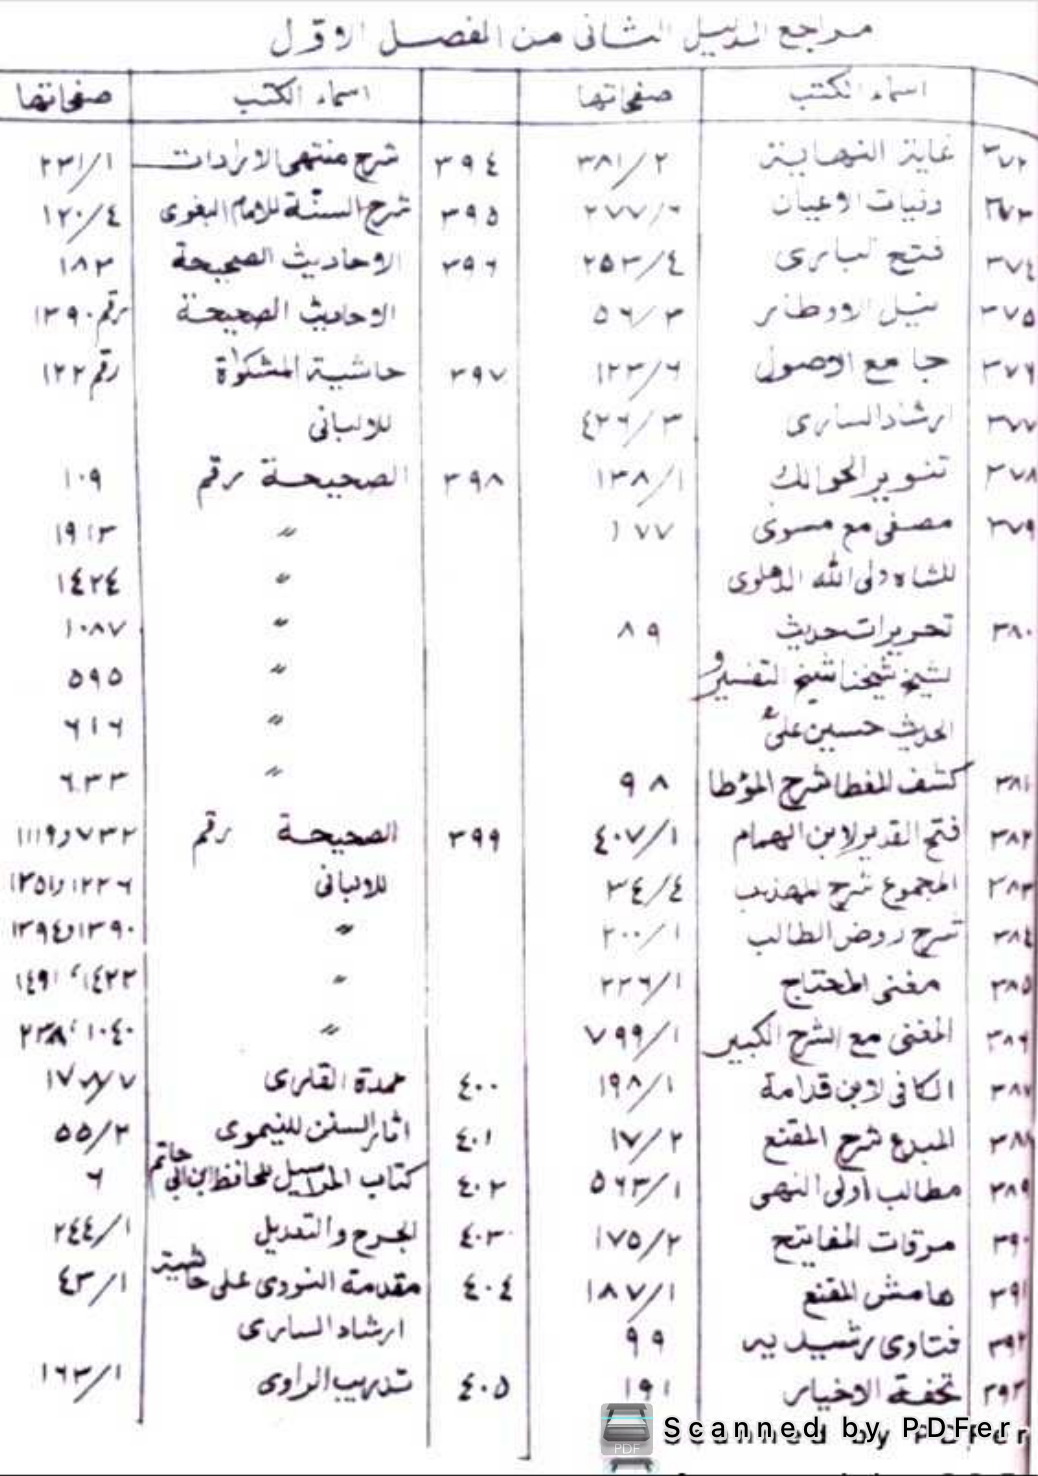 مراجع الدليل الثانى من الفصل الاول
اسماء الكتب صفحاتها
٣٧٢ غاية النهاية ٣٨١/٢
٣٧٣ وفيات الاعيان ٢٧٧/٦
٣٧٤ فتح البارى ٢٥٣/٤
٣٧٥ نيل الاوطار ٥٦/٣
٣٧٦ جامع الاصول ١٢٣/٦
٣٧٧ ارشاد السارى ٤٢٦/٣
٣٧٨ تنوير الحوالك ١٣٨/١
٣٧٩ مصفى مع مسوى ١٧٧
للشاه ولى الله الدهلوى
٣٨٠ تحريرات حديث ٨٩
لشيخ شيخنا شيخ التفسير و
الحديث حسين علىؒ
٣٨١ كشف المغطا شرح المؤطا ٩٨
٣٨٢ فتح القدير لابن الهمام ٤٠٧/١
٣٨٣ المجموع شرح المهذب ٣٤/٤
٣٨٤ شرح روض الطالب ٢٠٠/١
٣٨٥ مغنى المحتاج ٢٢٦/١
٣٨٦ المغنى مع الشرح الكبير ٧٩٩/١
٣٨٧ الكافى لابن قدامة ١٩٨/١
٣٨٨ المبدع شرح المقنع ١٧/٢
٣٨٩ مطالب اولى النهى ٥٦٣/١
٣٩٠ مرقات المفاتيح ١٧٥/٢
٣٩١ هامش المقنع ١٨٧/١
٣٩٢ فتاوى رشيديه ٩٩
٣٩٣ تحفة الاخيار ١٩١
اسماء الكتب صفحاتها
٣٩٤ شرح منتهى الارادات ٢٣١/١
٣٩٥ شرح السنّة للامام البغوى ١٢٠/٤
٣٩٦ الاحاديث الصحيحة ١٨٣
الاحاديث الصحيحة رقم ١٣٩٠
٣٩٧ حاشية المشكوٰة رقم ١٢٢
للالبانى
٣٩٨ الصحيحة رقم ١٠٩
〃 ١٩١٣
〃 ١٤٢٤
〃 ١٠٨٧
〃 ٥٩٥
〃 ٦١٦
〃 ٦٣٣
٣٩٩ الصحيحة رقم ٧٣٢و١١١٩
للالبانى ١٢٢٦و١٣٥١
〃 ١٣٩٠و١٣٩٤
〃 ١٤٢٣، ١٤٩١
〃 ١٠٤٠، ٢٣٨
٤٠٠ عمدة القارى ١٧٨/٧
٤٠١ اثار السنن للنيموى ٥٥/٢
٤٠٢ كتاب المراسيل للحافظ ابن ابى حاتم ٦
٤٠٣ الجرح والتعديل ٢٤٤/١
٤٠٤ مقدمة النووى على حاشية ٤٣/١
ارشاد السارى
٤٠٥ تدريب الراوى ١٦٣/١
PDF Scanned by PDFer